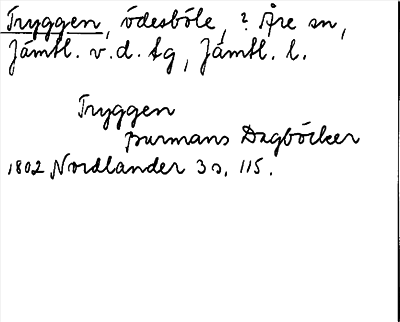 Tryggen, ödesböle, ? Åre sn,
Jämtl. v. d. tg, Jämtl. l.
Tryggen
Burmans Dagböcker
1802 Nordlander 3 s. 115.